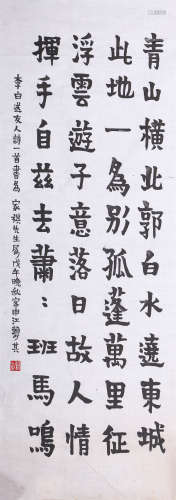 青山橫北郭白水遶東城
此地一為別孤蓬萬里征
浮雲遊子意落日故人情
揮手自茲去蕭〻班馬鳴
李白送友人詩一首書為 家祺先生屬戊午晚秋 申江